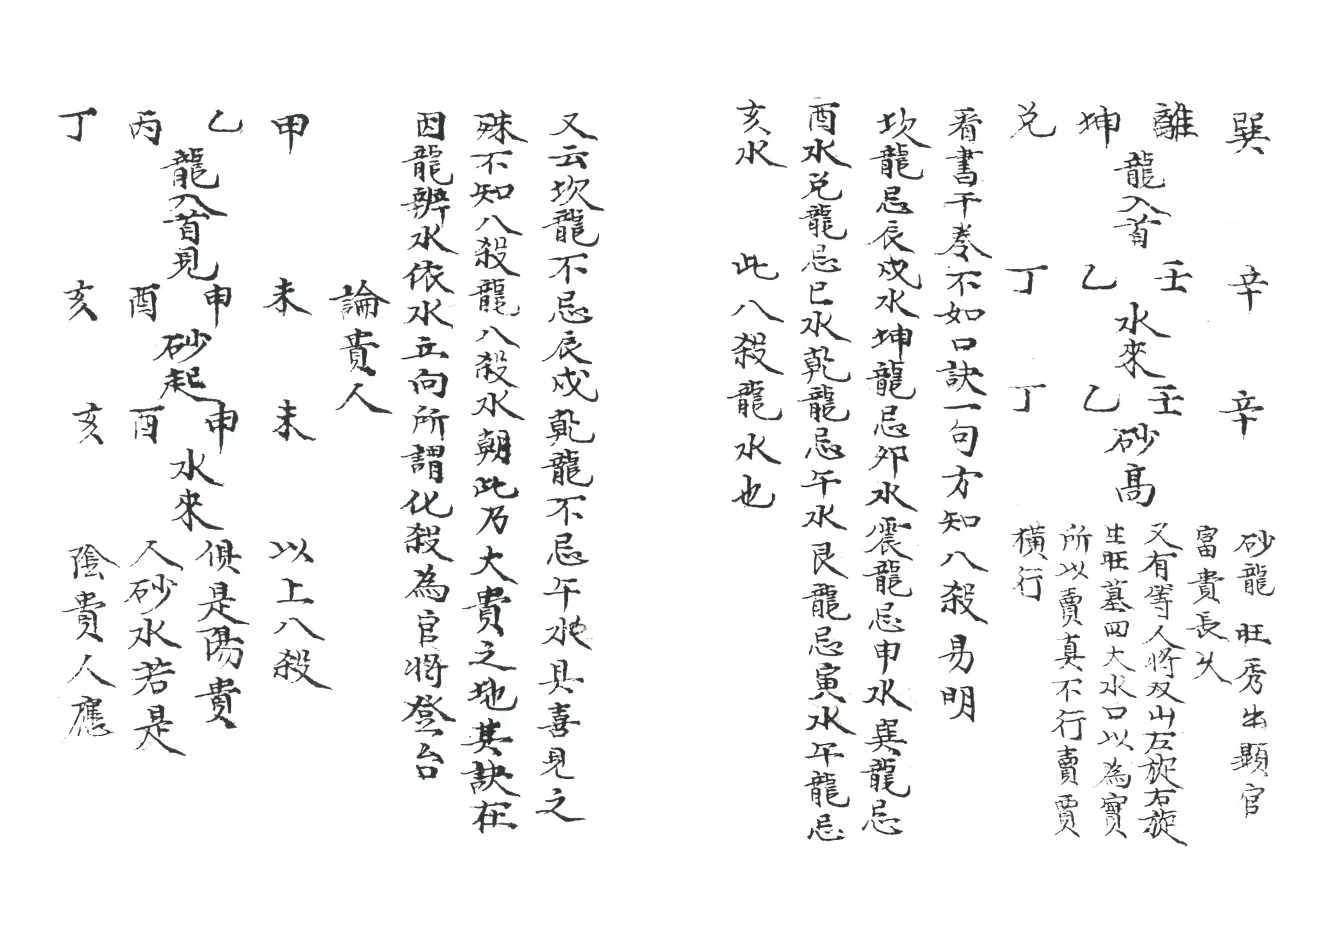 巽 辛 辛 砂龍旺秀生顯官
富貴長久
離 壬 壬 又有等人將双山左旋右旋
龍入首 水來 砂高
坤 乙 乙 生旺墓四大水口以為寶
所以賣真不行賣賈
兑 丁 丁 橫行
看書千卷不如口訣一句方知八殺易明
坎龍忌辰戍水坤龍忌卯水震龍忌申水巽龍忌
酉水兑龍忌巳水乾龍忌午水艮龍忌寅水午龍忌
亥水 此八殺龍水也
又云坎龍不忌辰戍乾龍不忌午水具喜見之
殊不知八殺龍八殺水朝此乃大貴之地其訣在
因龍辨水依水立向所謂化殺為官將登台
論貴人
甲 未 未 以上八殺
乙 申 申 俱是陽貴
龍入首見 砂起 水來
丙 酉 酉 人砂水若是
丁 亥 亥 陰貴人應